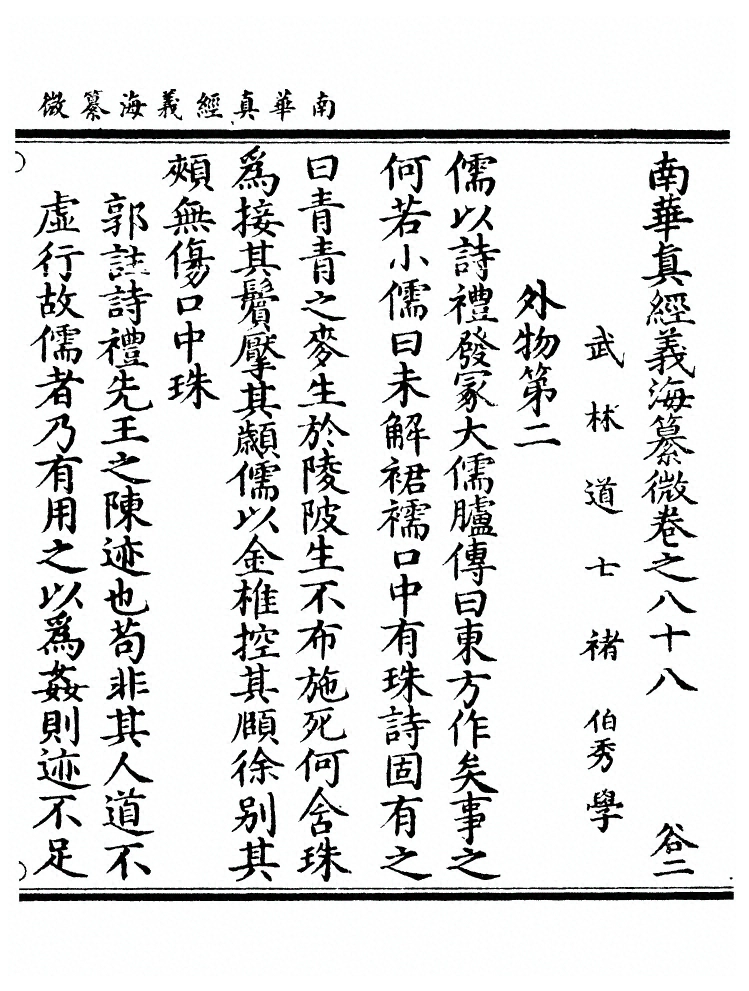 南華真經義海纂微
南華真經義海纂微卷之八十八
谷二
武林道士褚伯秀學
外物第二
儒以詩禮發冢大儒臚傳曰東方作矣事之
何若小儒曰未解裙襦口中有珠詩固有之
曰青青之麥生於陵陂生不布施死何含珠
為接其鬢擪其顪儒以金椎控其頤徐別其
頰無傷口中珠
郭註詩禮先王之陳迹也苟非其人道不
虛行故儒者乃有用之以爲姦則迹不足